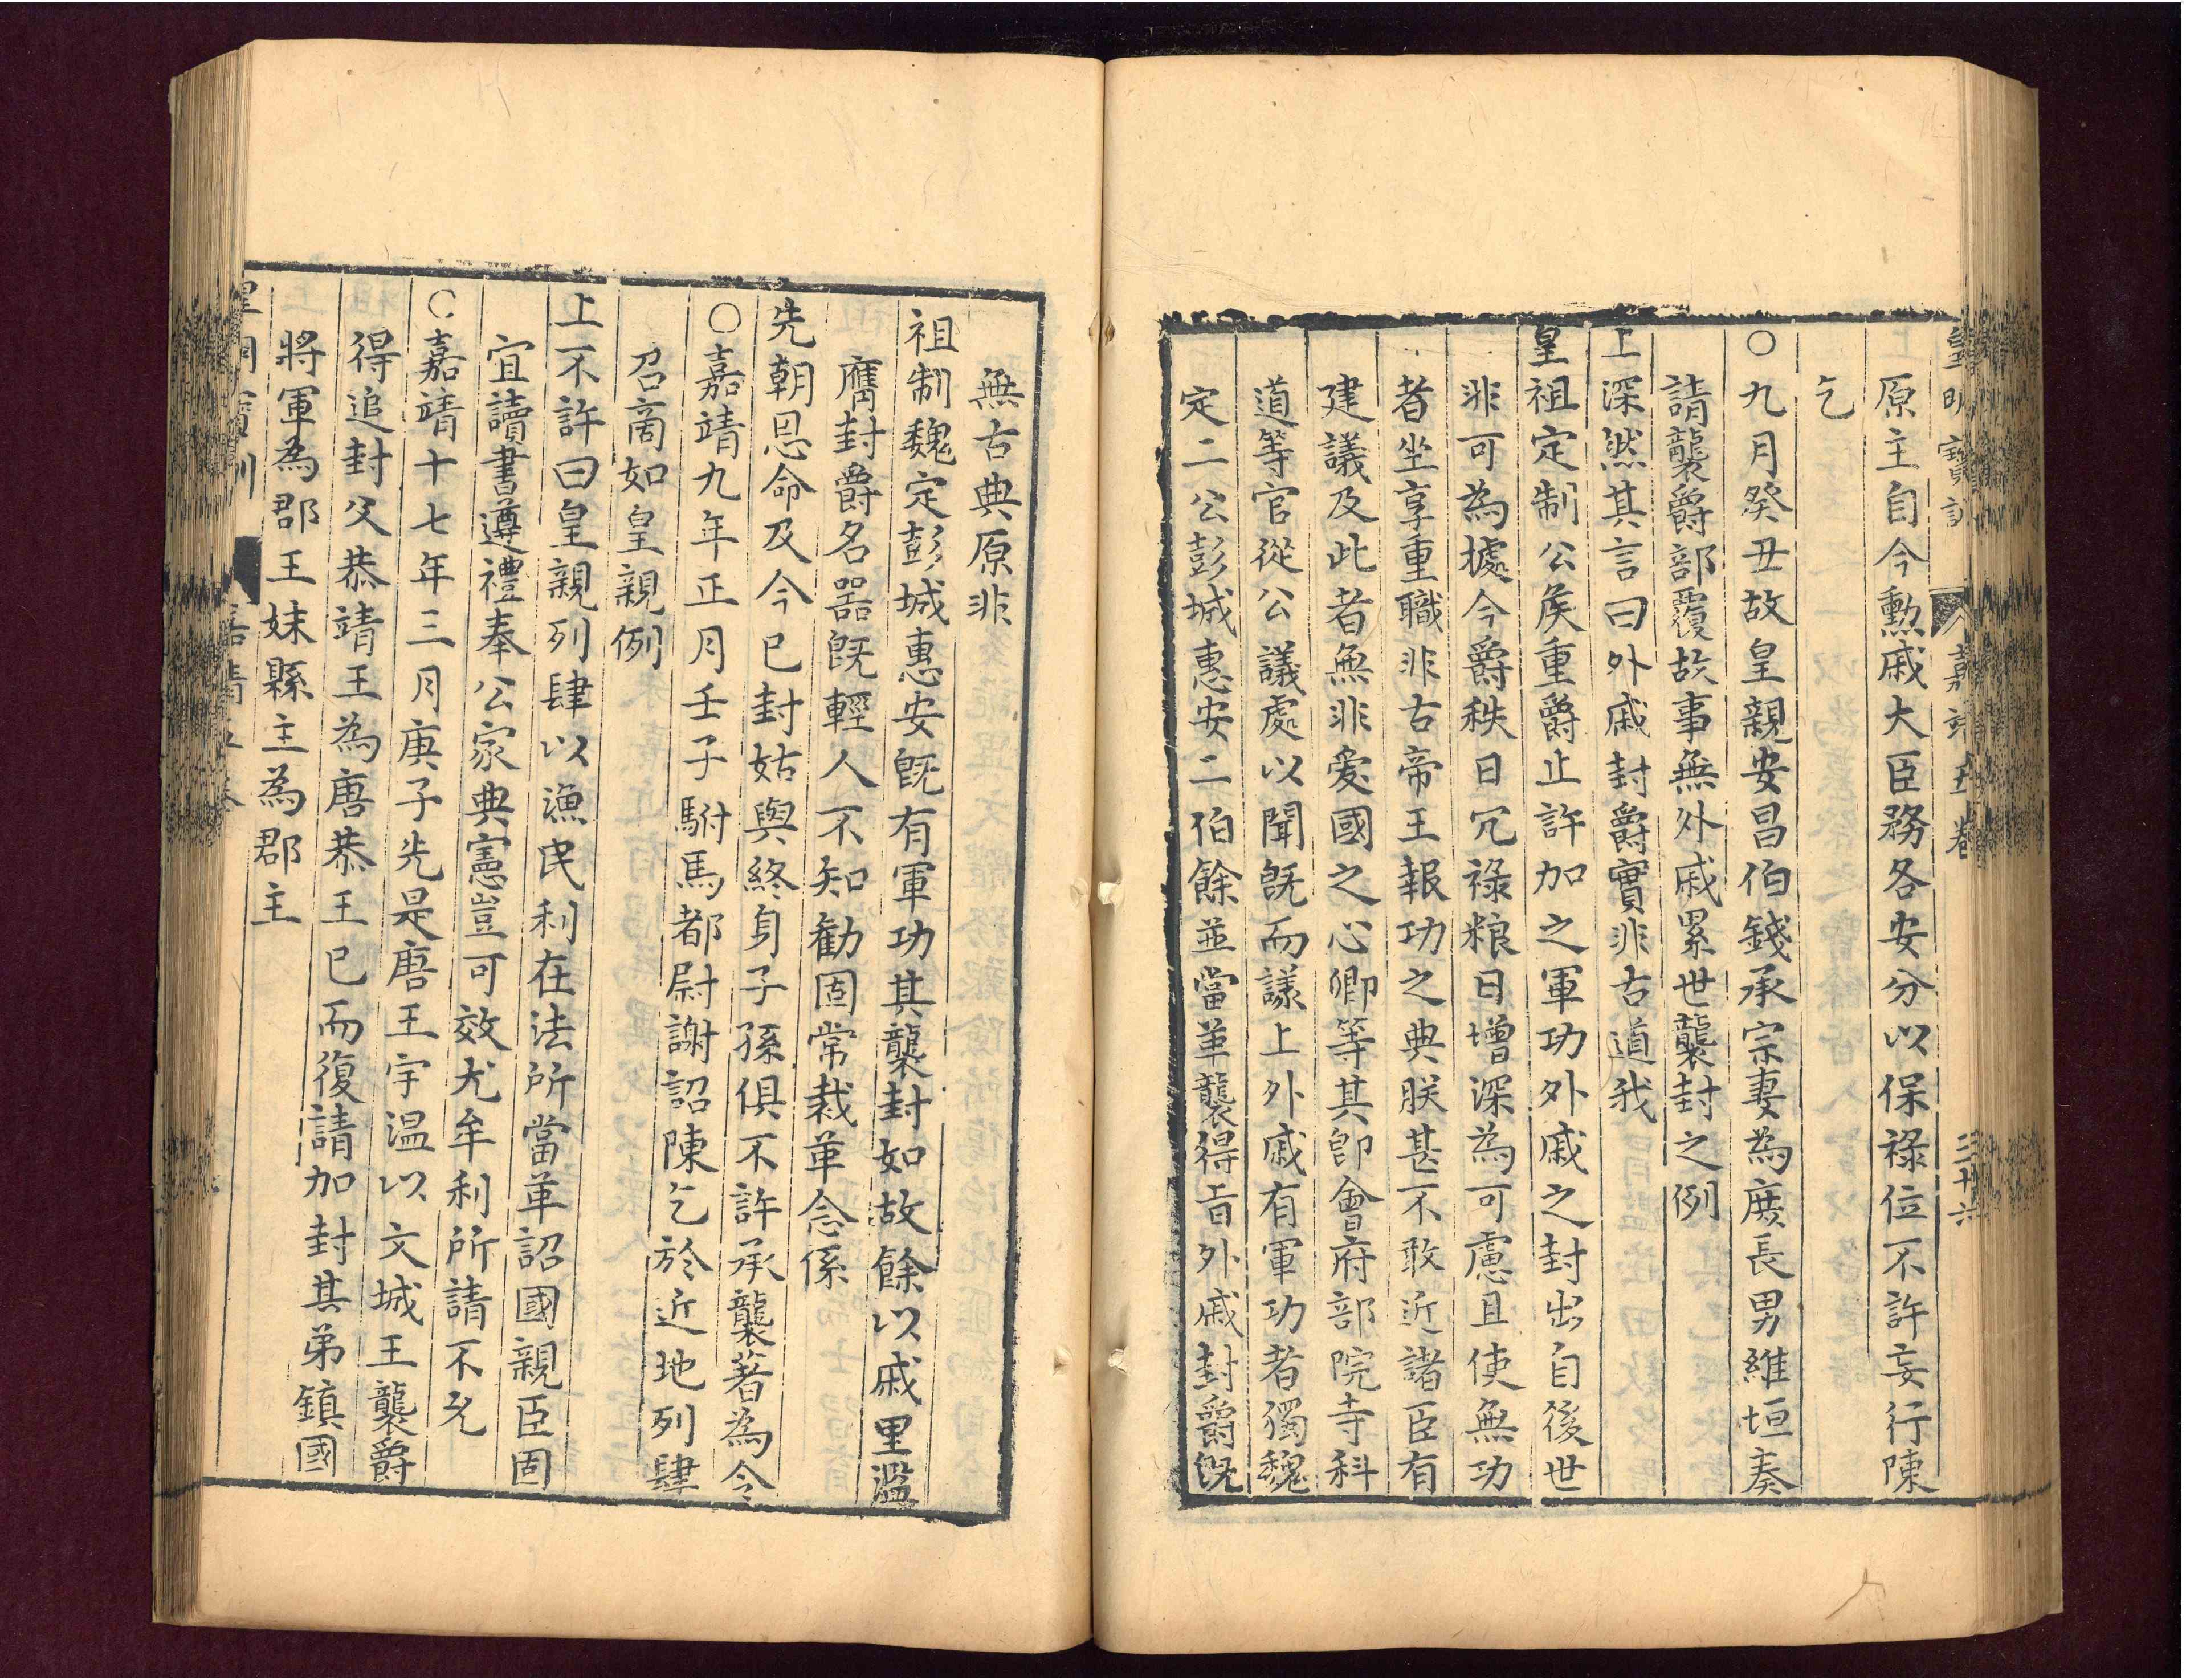 皇明寶訓 嘉靖五卷 三十六
原主自今勲戚大臣務各安分以保祿位不許妄行陳
乞
○九月癸丑故皇親安昌伯錢承宗妻為庶長男維垣奏
請襲爵部覆故事無外戚累世襲封之例
上深然其言曰外戚封爵實非古道我
皇祖定制公侯重爵止許加之軍功外戚之封出自後世
非可為據今爵秩日冗祿粮日增深為可慮且使無功
者坐享重職非古帝王報功之典朕甚不敢近諸臣有
建議及此者無非愛國之心卿等其卽會府部院寺科
道等官從公議處以聞旣而議上外戚有軍功者獨魏
定二公彭城惠安二伯餘並當革襲得旨外戚封爵旣
無古典原非
祖制魏定彭城惠安旣有軍功其襲封如故餘以戚里濫
膺封爵名器旣輕人不知勸固常裁革念係
先朝恩命及今已封姑與終身子孫俱不許承襲著為令
○嘉靖九年正月壬子駙馬都尉謝詔陳乞於近地列肆
召啇如皇親例
上不許曰皇親列肆以漁民利在法所當革詔國親臣固
宜讀書遵禮奉公家典憲豈可效尤牟利所請不允
○嘉靖十七年三月庚子先是唐王宇温以文城王襲爵
得追封父恭靖王為唐恭王已而復請加封其弟鎮國
將軍為郡王妹縣主為郡主